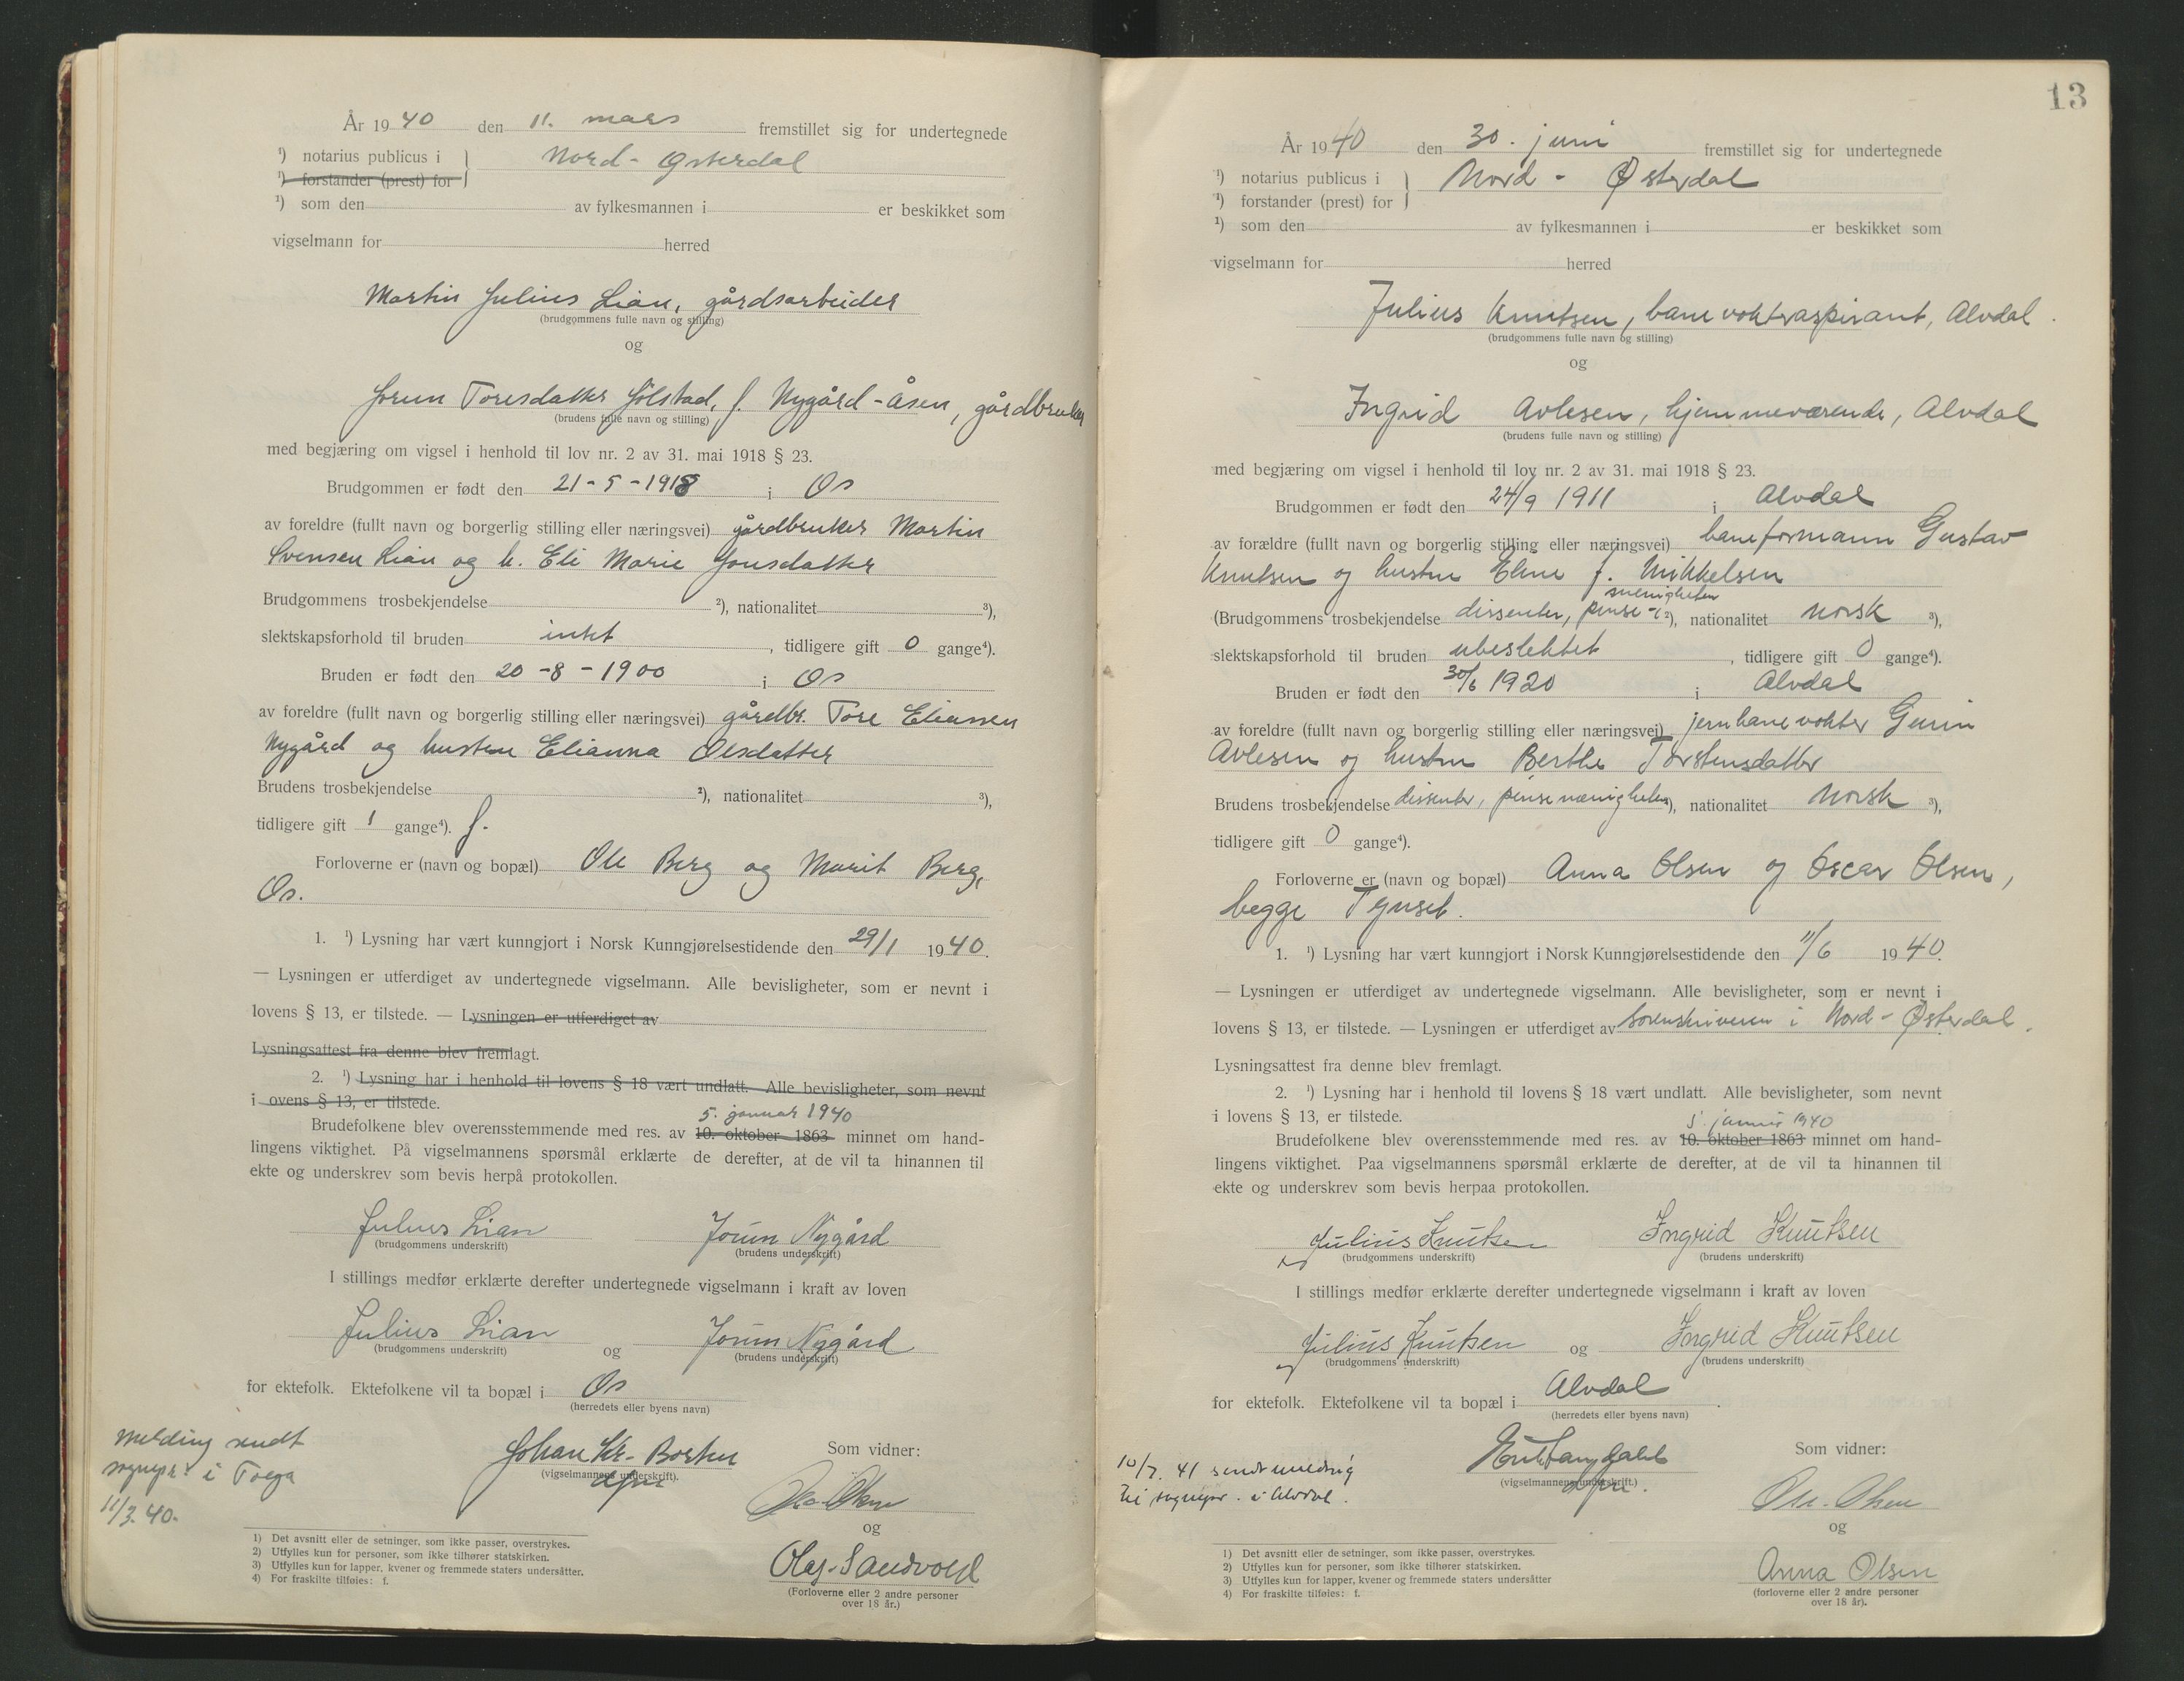 År 1940 den 11. mars fremstillet sig for undertegnede
¹) notarius publicus i Nord-Østerdal
¹) forstander (prest) for
¹) som den av fylkesmannen i er beskikket som
vigselmann for herred
Martin Julius Lian, gårdsarbeider
(brudgommens fulle navn og stilling)
og
Jorun Toresdatter Jolstad, f. Nygård-Åsen, gårdbruker
(brudens fulle navn og stilling)
med begjæring om vigsel i henhold til lov nr. 2 av 31. mai 1918 § 23.
Brudgommen er født den 21-5-1918 i Os
av foreldre (fullt navn og borgerlig stilling eller næringsvei) gårdbruker Martin
Svensen Lian og h. Eli Marie Jonsdatter
Brudgommens trosbekjendelse ²), nationalitet ³),
slektskapsforhold til bruden intet, tidligere gift 0 gange⁴).
Bruden er født den 20-8-1900 i Os
av foreldre (fullt navn og borgerlig stilling eller næringsvei) gårdbr. Tore Eliassen
Nygård og hustru Elianna Olsdatter
Brudens trosbekjendelse ²), nationalitet ³),
tidligere gift 1 gange⁴). f.
Forloverne er (navn og bopæl) Ole Berg og Marit Berg,
Os.
1. ¹) Lysning har vært kunngjort i Norsk Kunngjørelsestidende den 29/1 1940.
— Lysningen er utferdiget av undertegnede vigselmann. Alle bevisligheter, som er nevnt i
lovens § 13, er tilstede. — Lysningen er utferdiget av
Lysningsattest fra denne blev fremlagt.
2. ¹) Lysning har i henhold til lovens § 18 vært undlatt. Alle bevisligheter, som nevnt
i ovens § 13, er tilstede.
5. januar 1940
Brudefolkene blev overensstemmende med res. av 10. oktober 1863 minnet om hand-
lingens viktighet. På vigselmannens spørsmål erklærte de derefter, at de vil ta hinannen til
ekte og underskrev som bevis herpå protokollen.
Julius Lian Jorun Nygård
(brudgommens underskrift) (brudens underskrift)
I stillings medfør erklærte derefter undertegnede vigselmann i kraft av loven
Julius Lian og Jorun Nygård
(brudgommens underskrift) (brudens underskrift)
for ektefolk. Ektefolkene vil ta bopæl i Os
(herredets eller byens navn)
Melding sendt
sognepr. i Tolga
11/3.40.
Johan Kr. Borten
(vigselmannens underskrift).
Som vidner:
Olsen
og
Olaf Sandvold
(Forloverne eller 2 andre personer
over 18 år.)
1) Det avsnitt eller de setninger, som ikke passer, overstrykes.
2) Utfylles kun for personer, som ikke tilhører statskirken.
3) Utfylles kun for lapper, kvener og fremmede staters undersåtter.
4) For fraskilte tilføies: f.
13
År 1940 den 30. juni fremstillet sig for undertegnede
¹) notarius publicus i Nord-Østerdal
¹) forstander (prest) for
¹) som den av fylkesmannen i er beskikket som
vigselmann for herred
Julius Knutsen, banevokteraspirant, Alvdal.
(brudgommens fulle navn og stilling)
og
Ingrid Avlesen, hjemmeværende, Alvdal
(brudens fulle navn og stilling)
med begjæring om vigsel i henhold til lov nr. 2 av 31. mai 1918 § 23.
Brudgommen er født den 24/9 1911 i Alvdal
av forældre (fullt navn og borgerlig stilling eller næringsvei) baneformann Gustav
Knutsen og hustru Eline f. Mikkelsen
(Brudgommens trosbekjendelse dissenter, pinse-menigheten ²), nationalitet norsk ³),
slektskapsforhold til bruden ubeslektet, tidligere gift 0 gange⁴).
Bruden er født den 30/6 1920 i Alvdal
av foreldre (fullt navn og borgerlig stilling eller næringsvei) jernbanevokter
Avlesen og hustru Berthe Torstensdatter
Brudens trosbekjendelse dissenter, pinsemenigheten ²), nationalitet norsk ³),
tidligere gift 0 gange⁴).
Forloverne er (navn og bopæl) Anna Olsen og Oscar Olsen,
begge Tynset.
1. ¹) Lysning har vært kunngjort i Norsk Kunngjørelsestidende den 11/6 1940.
— Lysningen er utferdiget av undertegnede vigselmann. Alle bevisligheter, som er nevnt i
lovens § 13, er tilstede. — Lysningen er utferdiget av sorenskriveren i Nord-Østerdal.
Lysningsattest fra denne blev fremlagt.
2. ¹) Lysning har i henhold til lovens § 18 vært undlatt. Alle bevisligheter, som nevnt
i lovens § 13, er tilstede.
5. januar 1940
Brudefolkene blev overensstemmende med res. av 10. oktober 1863 minnet om hand-
lingens viktighet. Paa vigselmannens spørsmål erklærte de derefter, at de vil ta hinannen til
ekte og underskrev som bevis herpaa protokollen.
Julius Knutsen Ingrid Knutsen
(brudgommens underskrift) (brudens underskrift)
I stillings medfør erklærte derefter undertegnede vigselmann i kraft av loven
Julius Knutsen og Ingrid Knutsen
(brudgommens underskrift) (brudens underskrift)
for ektefolk. Ektefolkene vil ta bopæl i Alvdal.
(herredets eller byens navn)
10/7. 41 sendt melding
til sognepr. i Alvdal.
(vigselmannens underskrift.)
Som vidner:
Olsen
og
Anna Olsen
(forloverne eller 2 andre personer
over 18 år).
1) Det avsnitt eller de setninger, som ikke passer, overstrykes.
2) Utfylles kun for personer, som ikke tilhører statskirken.
3) Utfylles kun for lapper, kvener og fremmede staters undersåtter
4) For fraskilte tilføies: f.